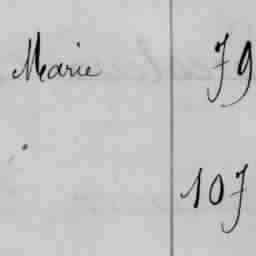 Marie 79
107